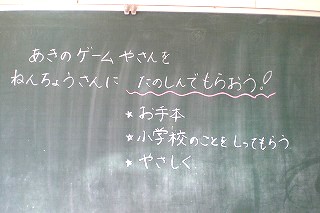 あきのゲームやさんを
ねんちょうさんに たのしんでもらおう！
★お手本
★小学校のことをしってもらう
★やさしく